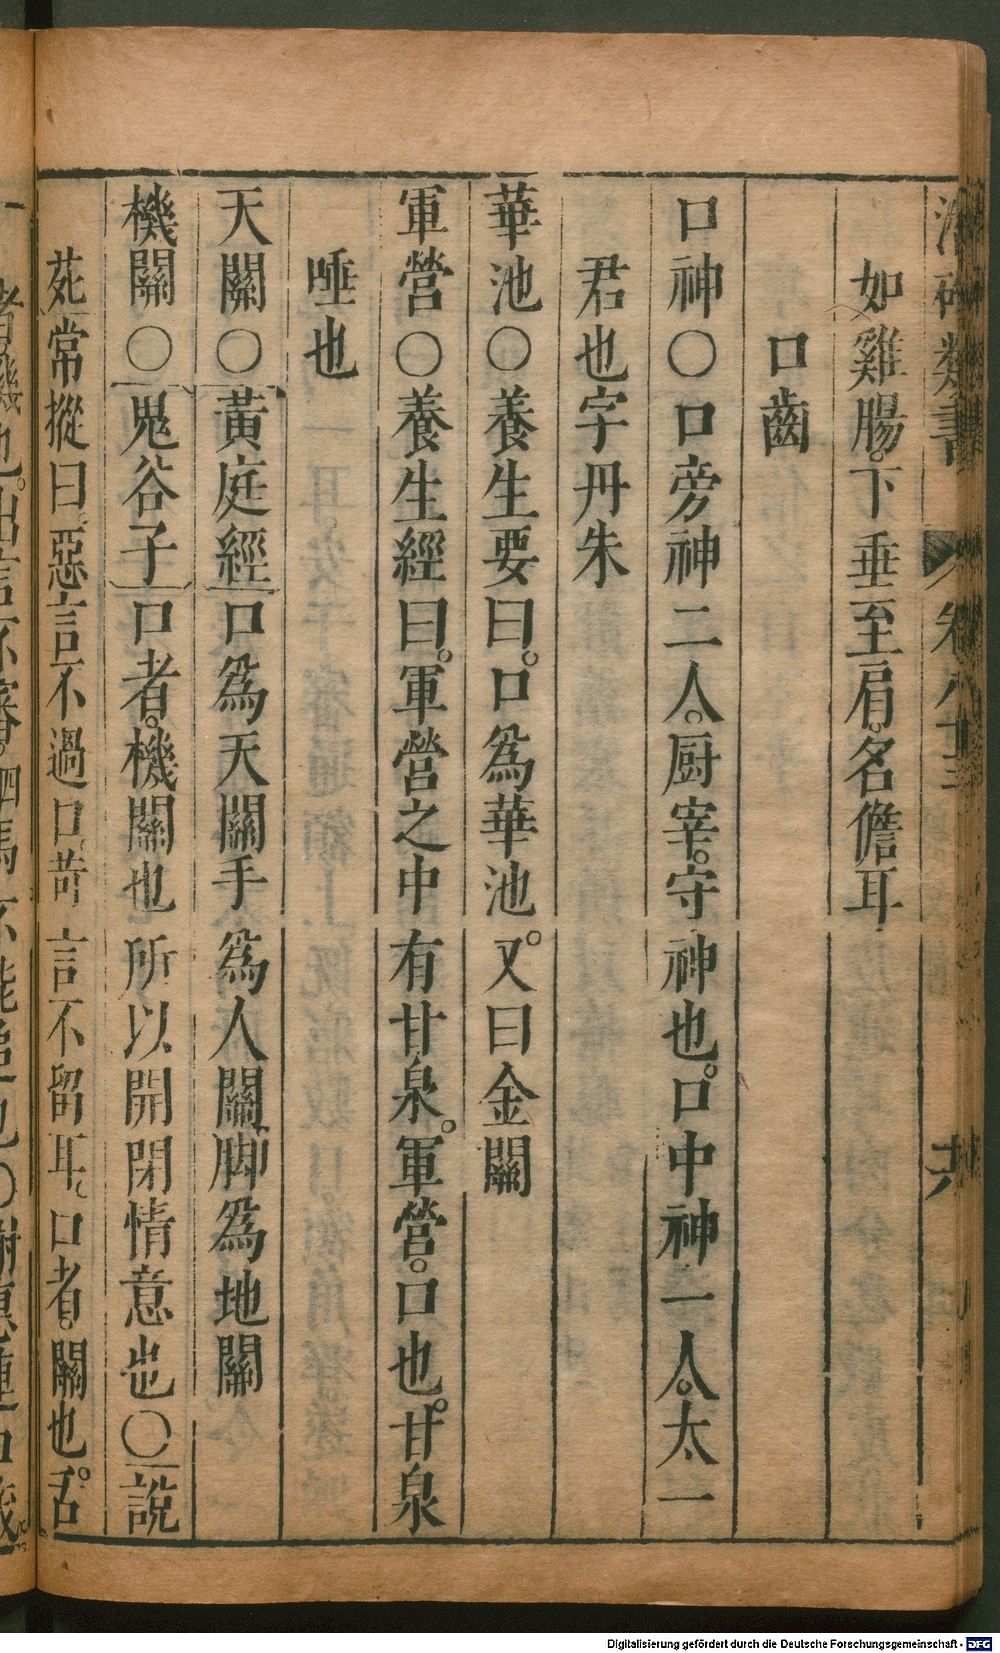 類書 卷八十三
如雞腸。下垂至肩。名儋耳
口齒
口神〇口旁神二人。厨宰。守神也。口中神一人。太一
君也字丹朱
華池〇養生要曰。口爲華池。又曰金關
軍營〇養生經曰。軍營之中有甘泉。軍營。口也。甘泉
唾也
天關〇黃庭經口爲天關手爲人關脚爲地關
機關〇鬼谷子口者。機關也所以開閉情意也〇說
苑常摐曰惡言不過口。苛言不留耳。口者。關也。舌
者機也。出言不審。駟馬不能追也〇謝惠連口箴
Digitalisierung gefördert durch die Deutsche Forschungsgemeinschaft - DFG